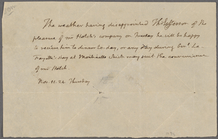 The weather having disappointed Th: Jefferson of the
pleasure of mr Hotels's company on Tuesday he will be happy
to receive him to dinner to-day, or any other day during Genl. La
Fayette's stay at Monticello which may suit the convenience
of mr Hotels
Nov. 11. 24. Thursday